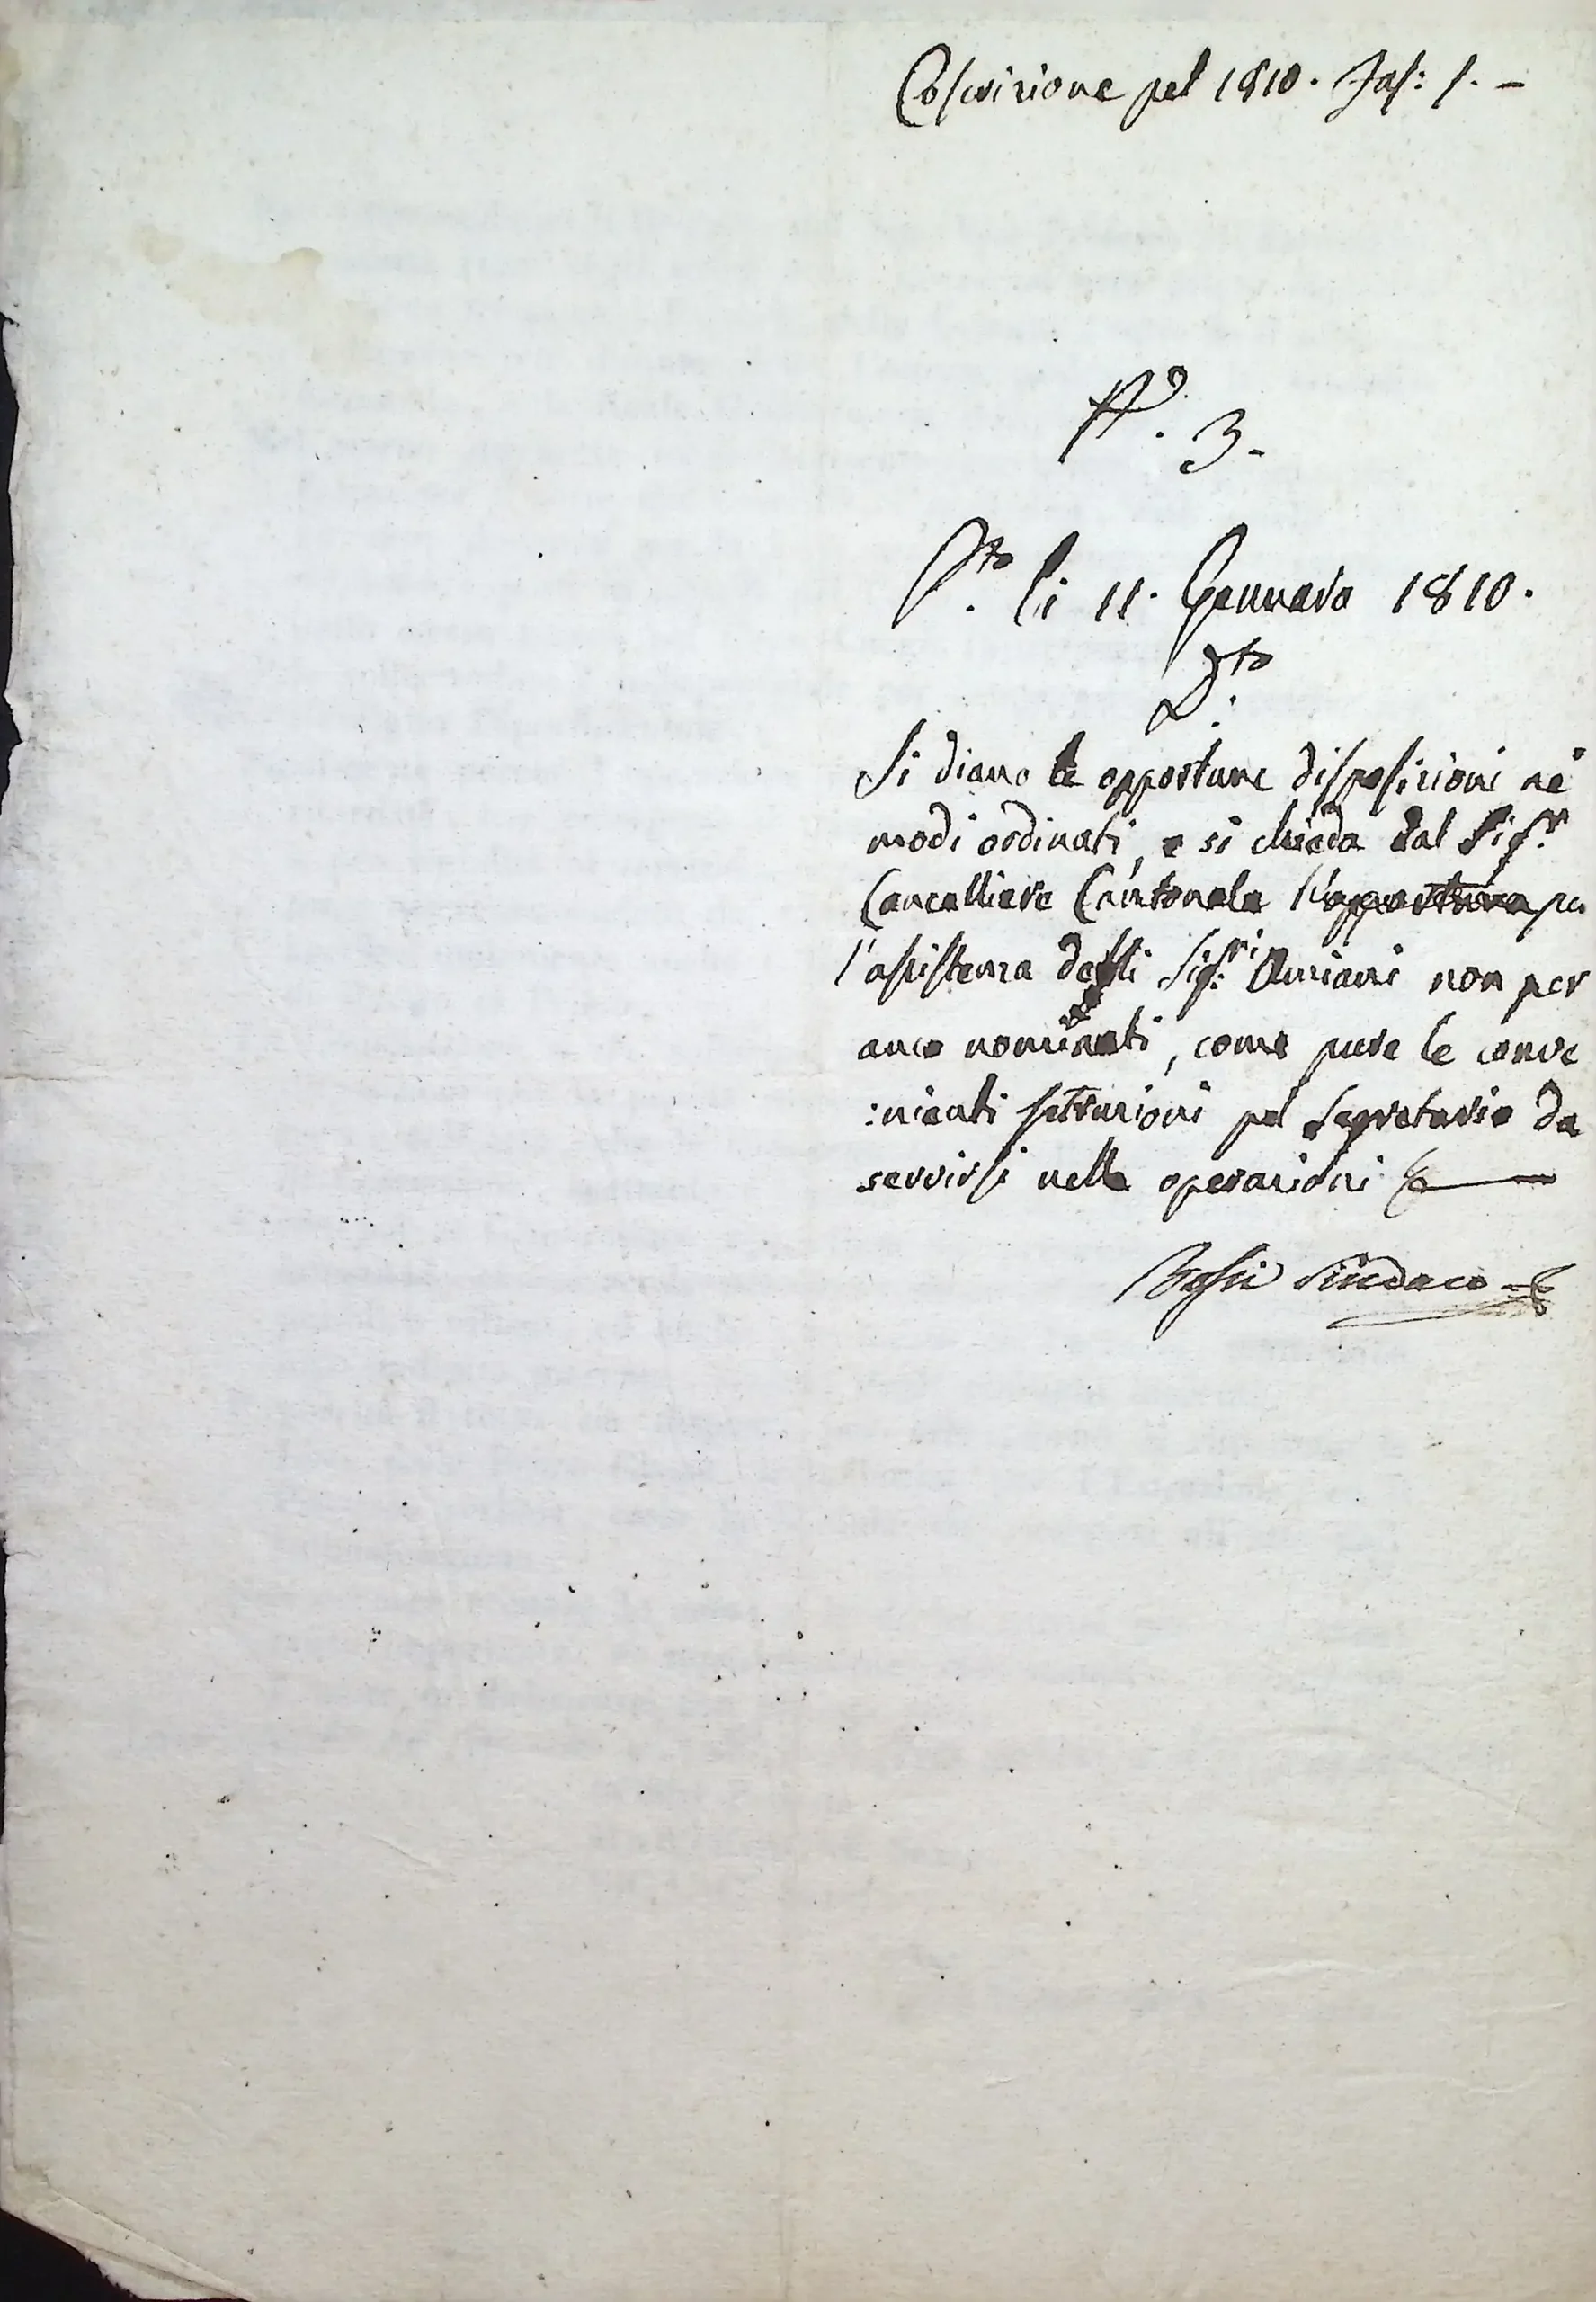 Coscrizione pel 1810. Fas: 1. –
N.º 3.
P.to li 11. Gennaro 1810.
D.to
Si diano le opportune disposizioni ne'
modi ordinati, e si chieda dal Sig.r
Cancelliere Cantonale l'opportuna per
l'assistenza degli Sig.ri Anziani non per
anco nominati, come pure le conve
:nienti istruzioni pel Segretario da
servirsi nelle operazioni
Sindaco